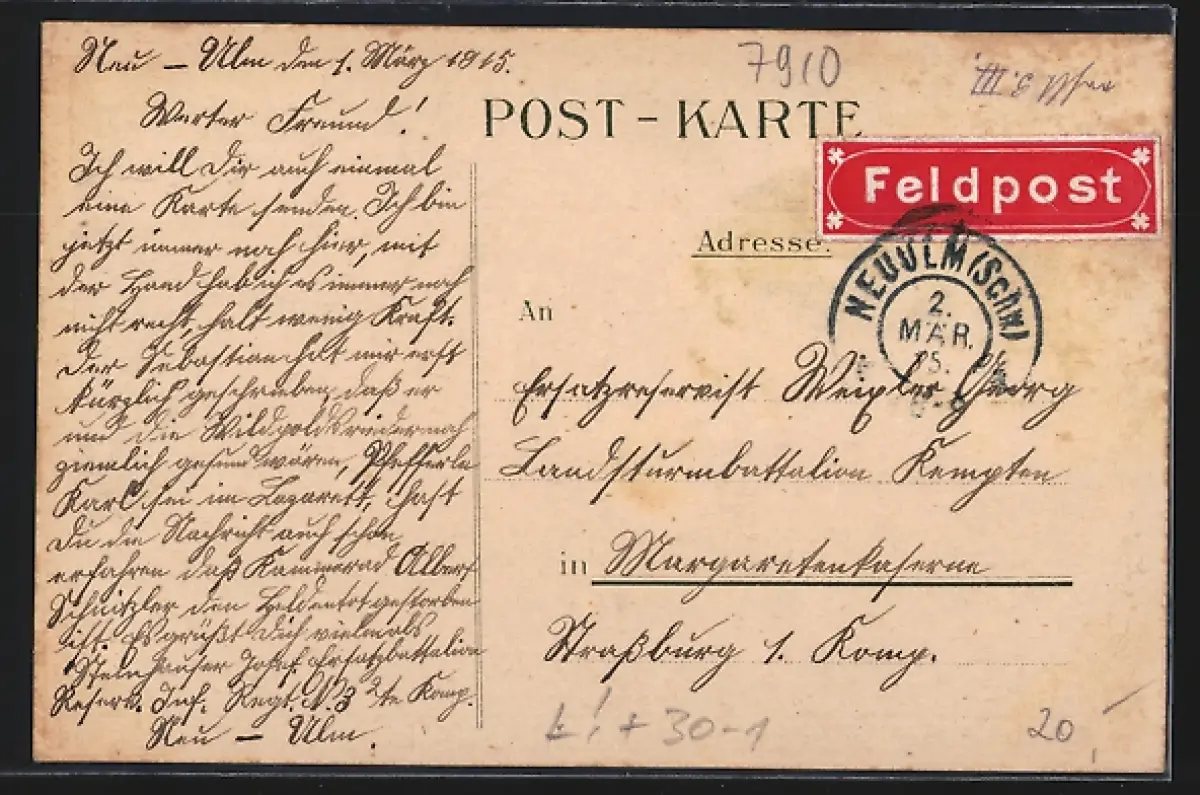 Neu – Ulm den 1. März 1915.
Werter Freund!
Ich will Dir auch einmal
eine Karte senden. Ich bin
jetzt immer noch hier, mit
der Hand hab ich es immer noch
nicht recht, halt wenig Kraft.
Der Sebastian hat mir erst
kürzlich geschrieben, daß er
und die Wildpoldsrieder noch
ziemlich gesund wären, Pfefferle
Karl sei im Lazarett, hast
Du die Nachricht auch schon
erfahren daß Kammerad Albert
Schnitzler den Heldentot gestorben
ist. Es grüßt Dich vielmals
Steinhauser Josef Ersatzbattalion
Reserv. Inf. Regt. N. 3 2te Komp.
Neu – Ulm.
7910
POST-KARTE
Feldpost
Adresse.
NEUULM (Schw)
2.
MÄR.
15.
An
Ersatzreservist Weixler Georg
Landsturmbattalion Kempten
in Margaretenkaserne
Straßburg 1. Komp.
+ 30-1
20